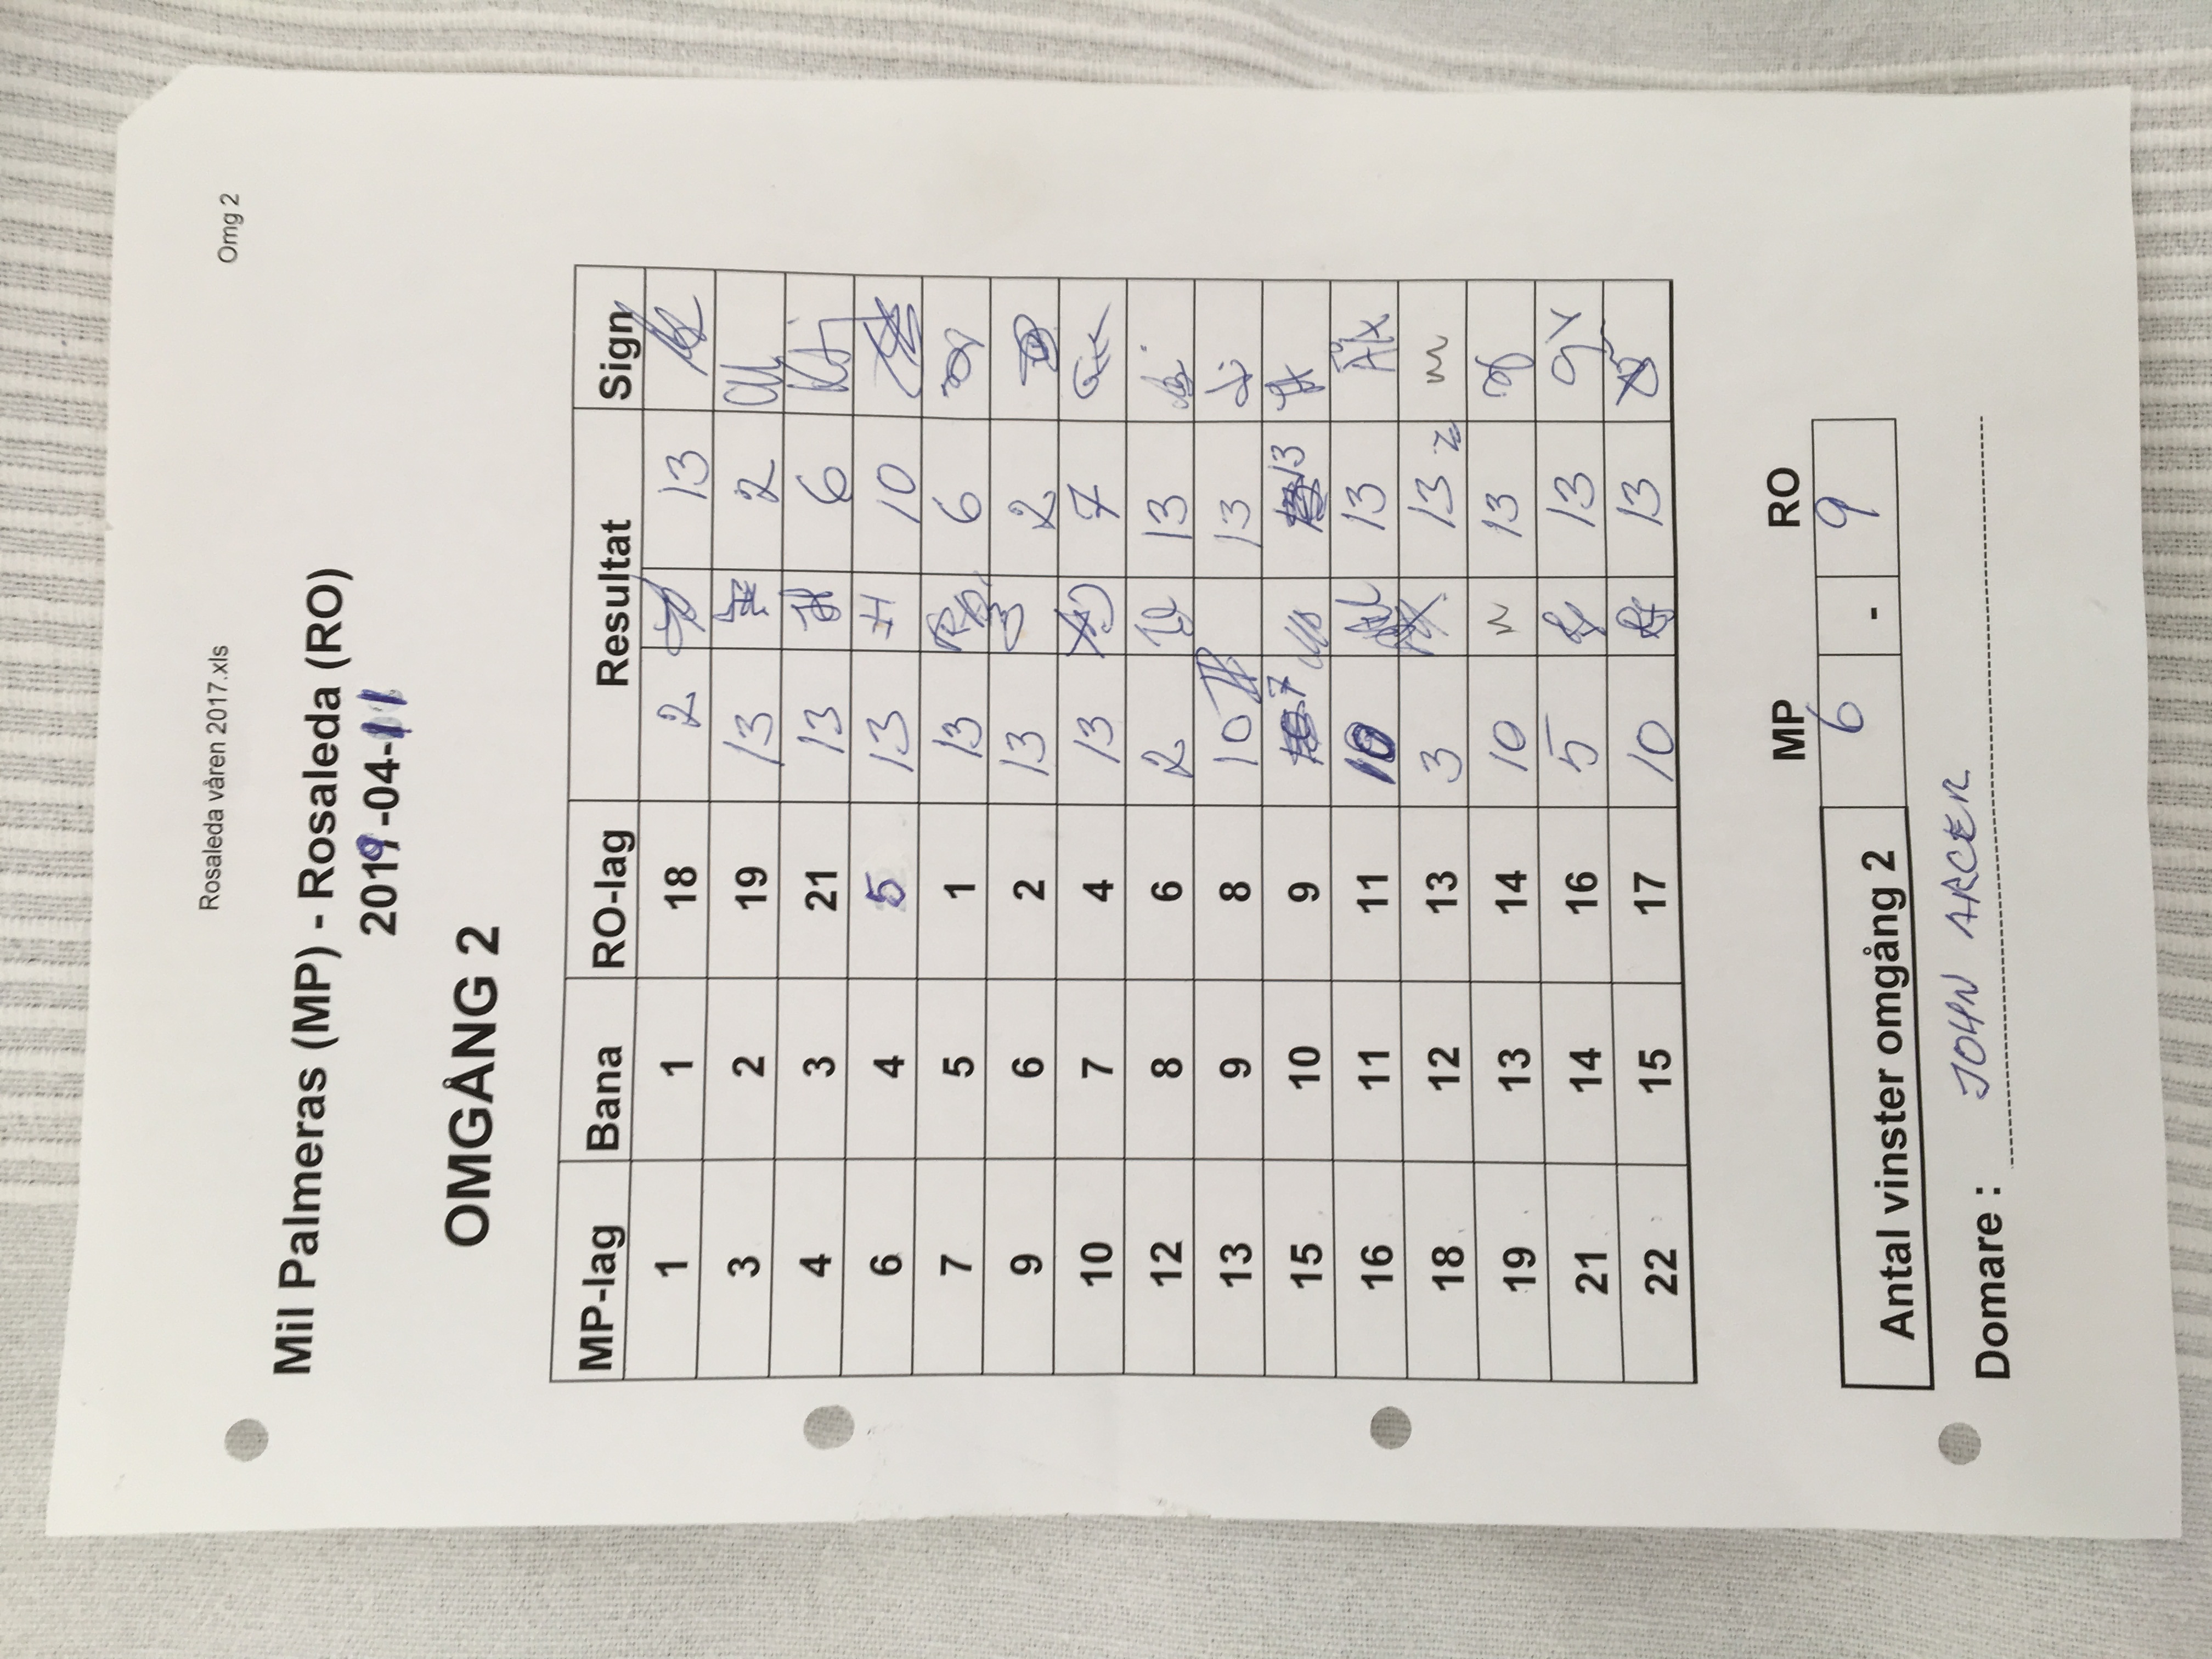 Rosaleda våren 2017.xls Omg 2
Mil Palmeras (MP) - Rosaleda (RO)
2019-04-11
OMGÅNG 2
MP-lag Bana RO-lag Resultat Sign
1 1 18 2 13
3 2 19 13 2
4 3 21 13 6
6 4 5 13 10
7 5 1 13 6
9 6 2 13 2
10 7 4 13 7
12 8 6 2 13
13 9 8 10 13
15 10 9 7 13
16 11 11 10 13
18 12 13 3 13
19 13 14 10 13
21 14 16 5 13
22 15 17 10 13
MP RO
Antal vinster omgång 2 6 - 9
Domare : JOHN ARCER